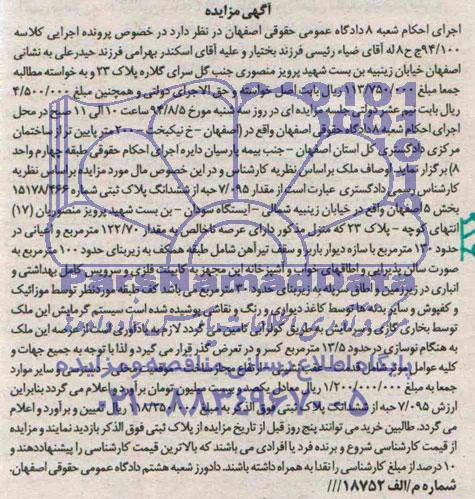 آگهی مزایده
اجرای احکام شعبه ۸ دادگاه عمومی حقوقی اصفهان در نظر دارد در خصوص پرونده اجرایی کلاسه
۹۴/۱۰۰ج ح۸ له آقای ضیاء رئیسی فرزند بختیار و علیه آقای اسکندر بهرامی فرزند حیدرعلی به نشانی
اصفهان خیابان زینبیه بن بست شهید پرویز منصوری جنب گل سرای گلاره پلاک ۲۳ و به خواسته مطالبه
جمعا مبلغ ۱۱۳/۷۵۰/۰۰۰ ریال بابت اصل خواسته و حق الاجرای دولتی و همچنین مبلغ ۴/۵۰۰/۰۰۰
ریال بابت نیم عشر دولتی جلسه مزایده ای در روز سه شنبه مورخ ۹۴/۸/۵ ساعت ۱۰ الی ۱۱ صبح در محل
اجرای احکام شعبه ۸ دادگاه حقوقی اصفهان واقع در (اصفهان - خ نیکبخت - ۲۰۰ متر پایین تر از ساختمان
مرکزی دادگستری کل استان اصفهان - جنب بیمه پارسیان دایره اجرای احکام حقوقی طبقه چهارم واحد
۸) برگزار نماید. اوصاف ملک براساس نظریه کارشناس و در این خصوص مال مورد مزایده براساس نظریه
کارشناس رسمی دادگستری عبارت است از مقدار ۷/۰۹۵ حبه از ششدانگ پلاک ثبتی شماره ۱۵۱۷۸/۴۶۶
بخش ۵ اصفهان واقع در خیابان زینبیه شمالی - ایستگاه سودان - بن بست شهید پرویز منصوریان (۱۷)
انتهای کوچه - پلاک ۲۳ که منزل مذکور دارای عرصه ناخالص به مقدار ۱۲۲/۷۰ مترمربع و اعیانی در
حدود ۱۳۰ مترمربع با سازه دیوار باربر و سقف تیرآهن شامل طبقه همکف به زیربنای حدود ۱۰۰ مترمربع به
صورت سالن پذیرایی و اطاقهای خواب و آشپزخانه این مجهز به کابینت فلزی و سرویس کامل بهداشتی و
انباری در زیرزمین و اطاق سرپله به زیربنای حدود ۳۰ مترمربع می باشد کف طبقه موردنظر توسط موزائیک
و کفپوش و سایر بدنه ها توسط کاغذ دیواری و رنگ و نقاشی پوشیده شده است سیستم گرمایش این ملک
توسط بخاری گازی و سرمایش به طریق کولر آبی تامین می گردد لازم به یادآوری است از عرصه این ملک
به هنگام نوسازی در حدود ۱۳/۵ مترمربع کسر و در تعرض گذر قرار می گیرد و لذا با توجه به جمیع جهات و
کلیه عوامل موثر شامل قدمت - عقب نشینی - ارتفاع مجاز ساخت - موقعیت محلی - دسترسی و سایر موارد
جمعا به مبلغ ۱/۲۰۰/۰۰۰/۰۰۰ ریال معادل یکصد و بیست میلیون تومان برآورد و اعلام می گردد بنابراین
ارزش ۷/۰۹۵ حبه از ششدانگ پلاک ثبتی فوق الذکر به مبلغ ریال تعیین و برآورد و اعلام
می گردد. طالبین خرید می توانند پنج روز قبل از تاریخ مزایده از پلاک ثبتی فوق الذکر بازدید نمایند و مزایده
از قیمت کارشناسی شروع و برنده فرد یا افرادی می باشند که بالاترین قیمت کارشناسی را پیشنهاد دهند و
۱۰ درصد از مبلغ کارشناسی را نقدا به همراه داشته باشند. دادورز شعبه هشتم دادگاه عمومی حقوقی اصفهان.
شماره م/الف ۱۸۷۵۲///
پایگاه اطلاع رسانی مناقصه و مزایده
۰۲۱-۸۸۳۴۹۶۷۰-۵